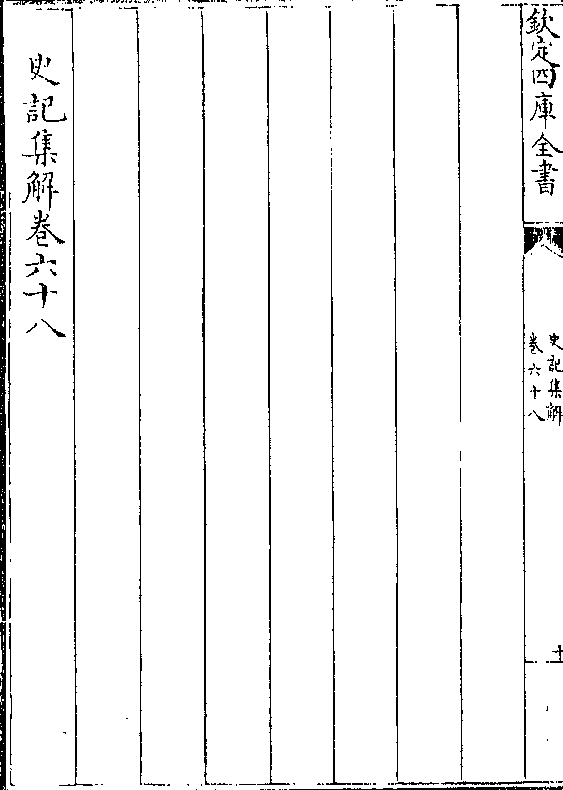 欽定四庫全書
史記集解
卷六十八
十
史記集解卷六十八